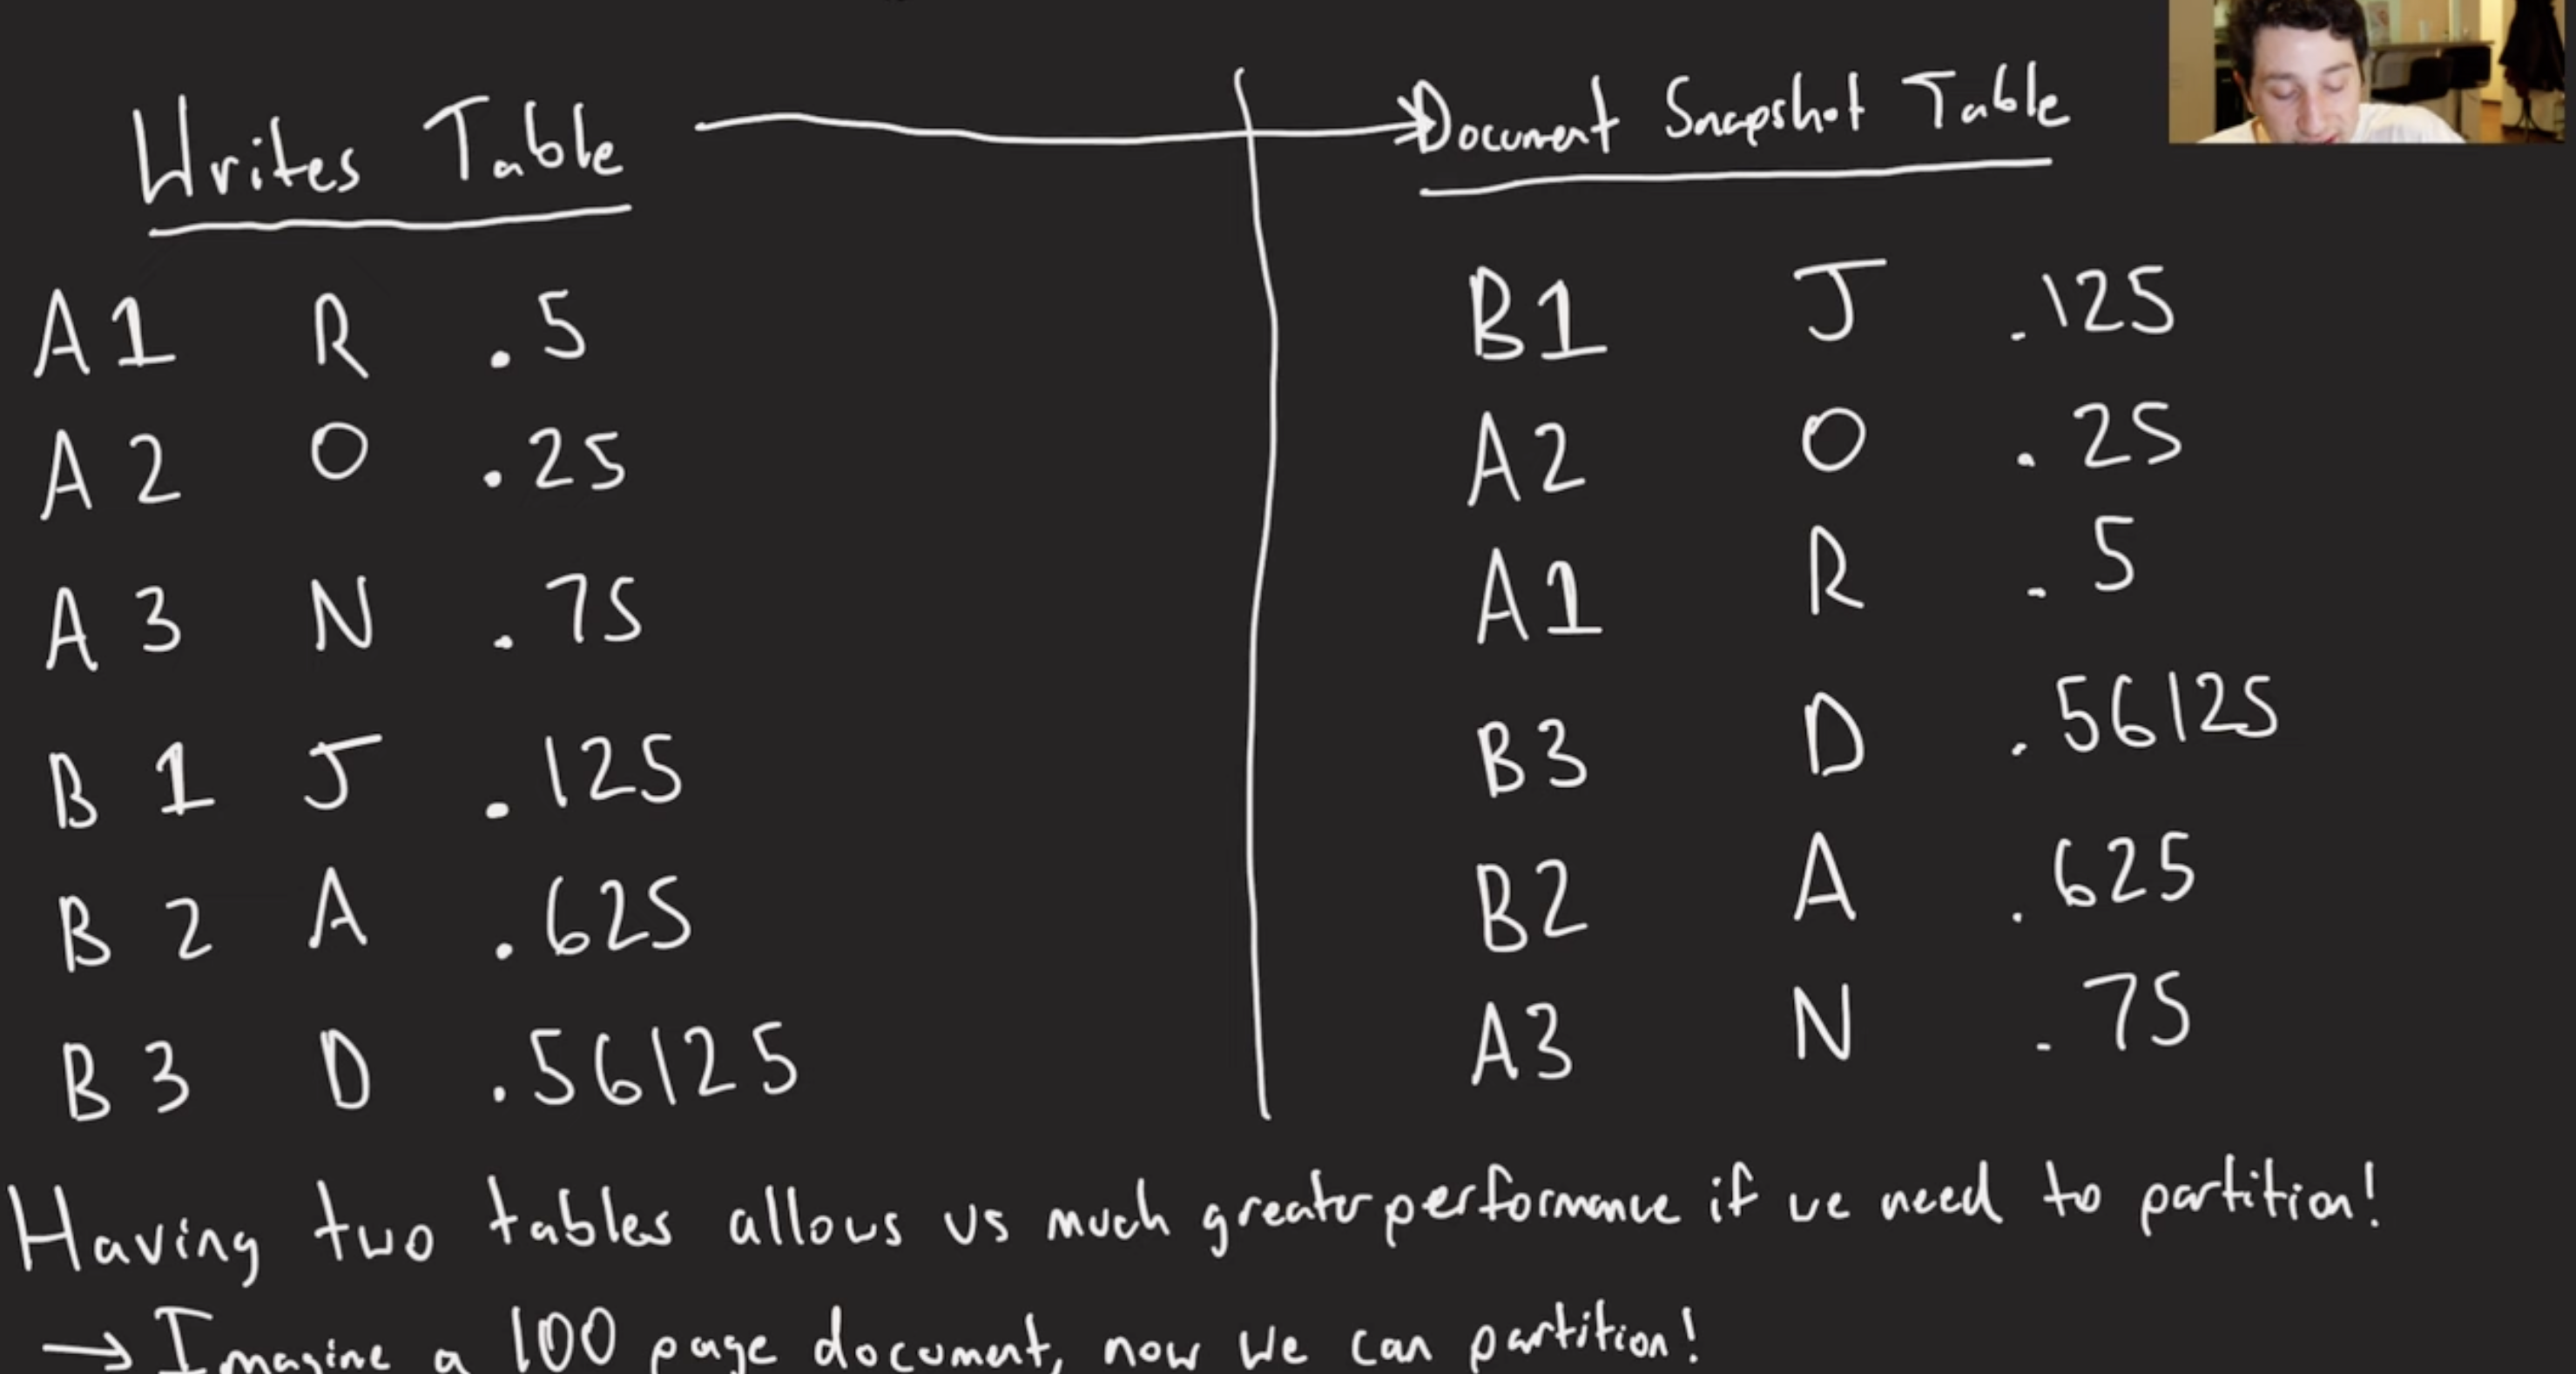 Writes Table
A1 R .5
A2 O .25
A3 N .75
B1 J .125
B2 A .625
B3 D .56125
Document Snapshot Table
B1 J .125
A2 O .25
A1 R .5
B3 D .56125
B2 A .625
A3 N .75
Having two tables allows us much greater performance if we need to partition!
→ Imagine a 100 page document, now we can partition!